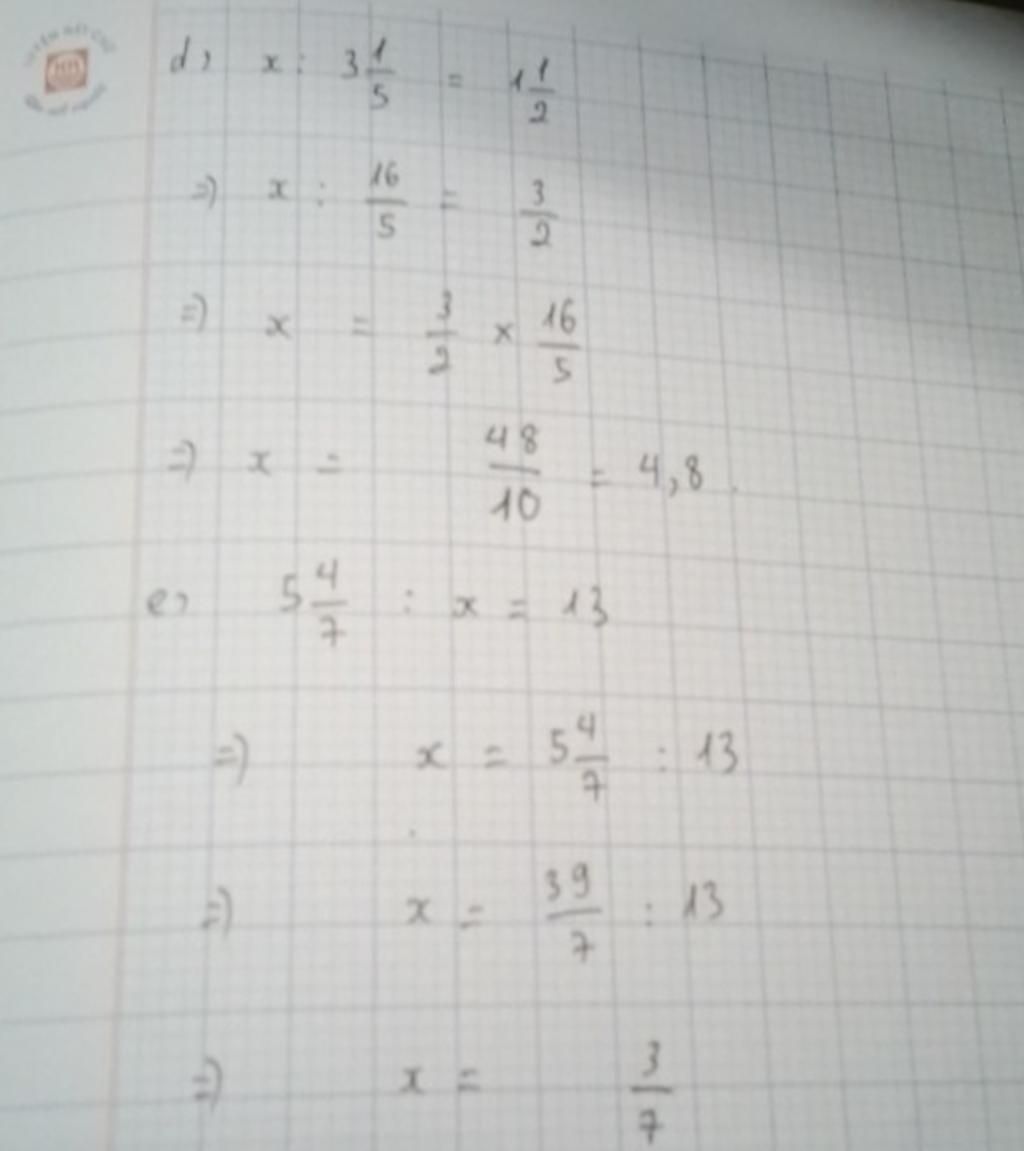 d, x : 3 1/5 = 1 1/2
=) x : 16/5 = 3/2
=) x = 3/2 × 16/5
=) x = 48/10 = 4,8
e, 5 4/7 : x = 13
=) x = 5 4/7 : 13
=) x = 39/7 : 13
=) x = 3/7